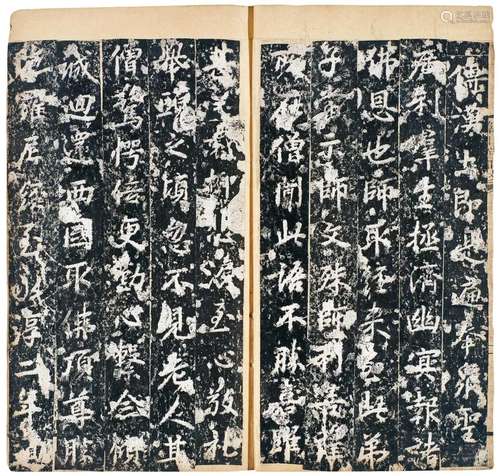 傳漢土即是遍奉眾聖
廣利羣生拯濟幽冥報諸
佛恩也師取經来至此弟
子當示師文殊師利菩薩
所在僧聞此語不勝喜躍
抑悲淚至心敬礼
舉頭之頃忽不見老人其
僧驚愕倍更勤心繫念傾
誠迴還西國取佛頂尊勝
陀羅尼經至永淳二年迴